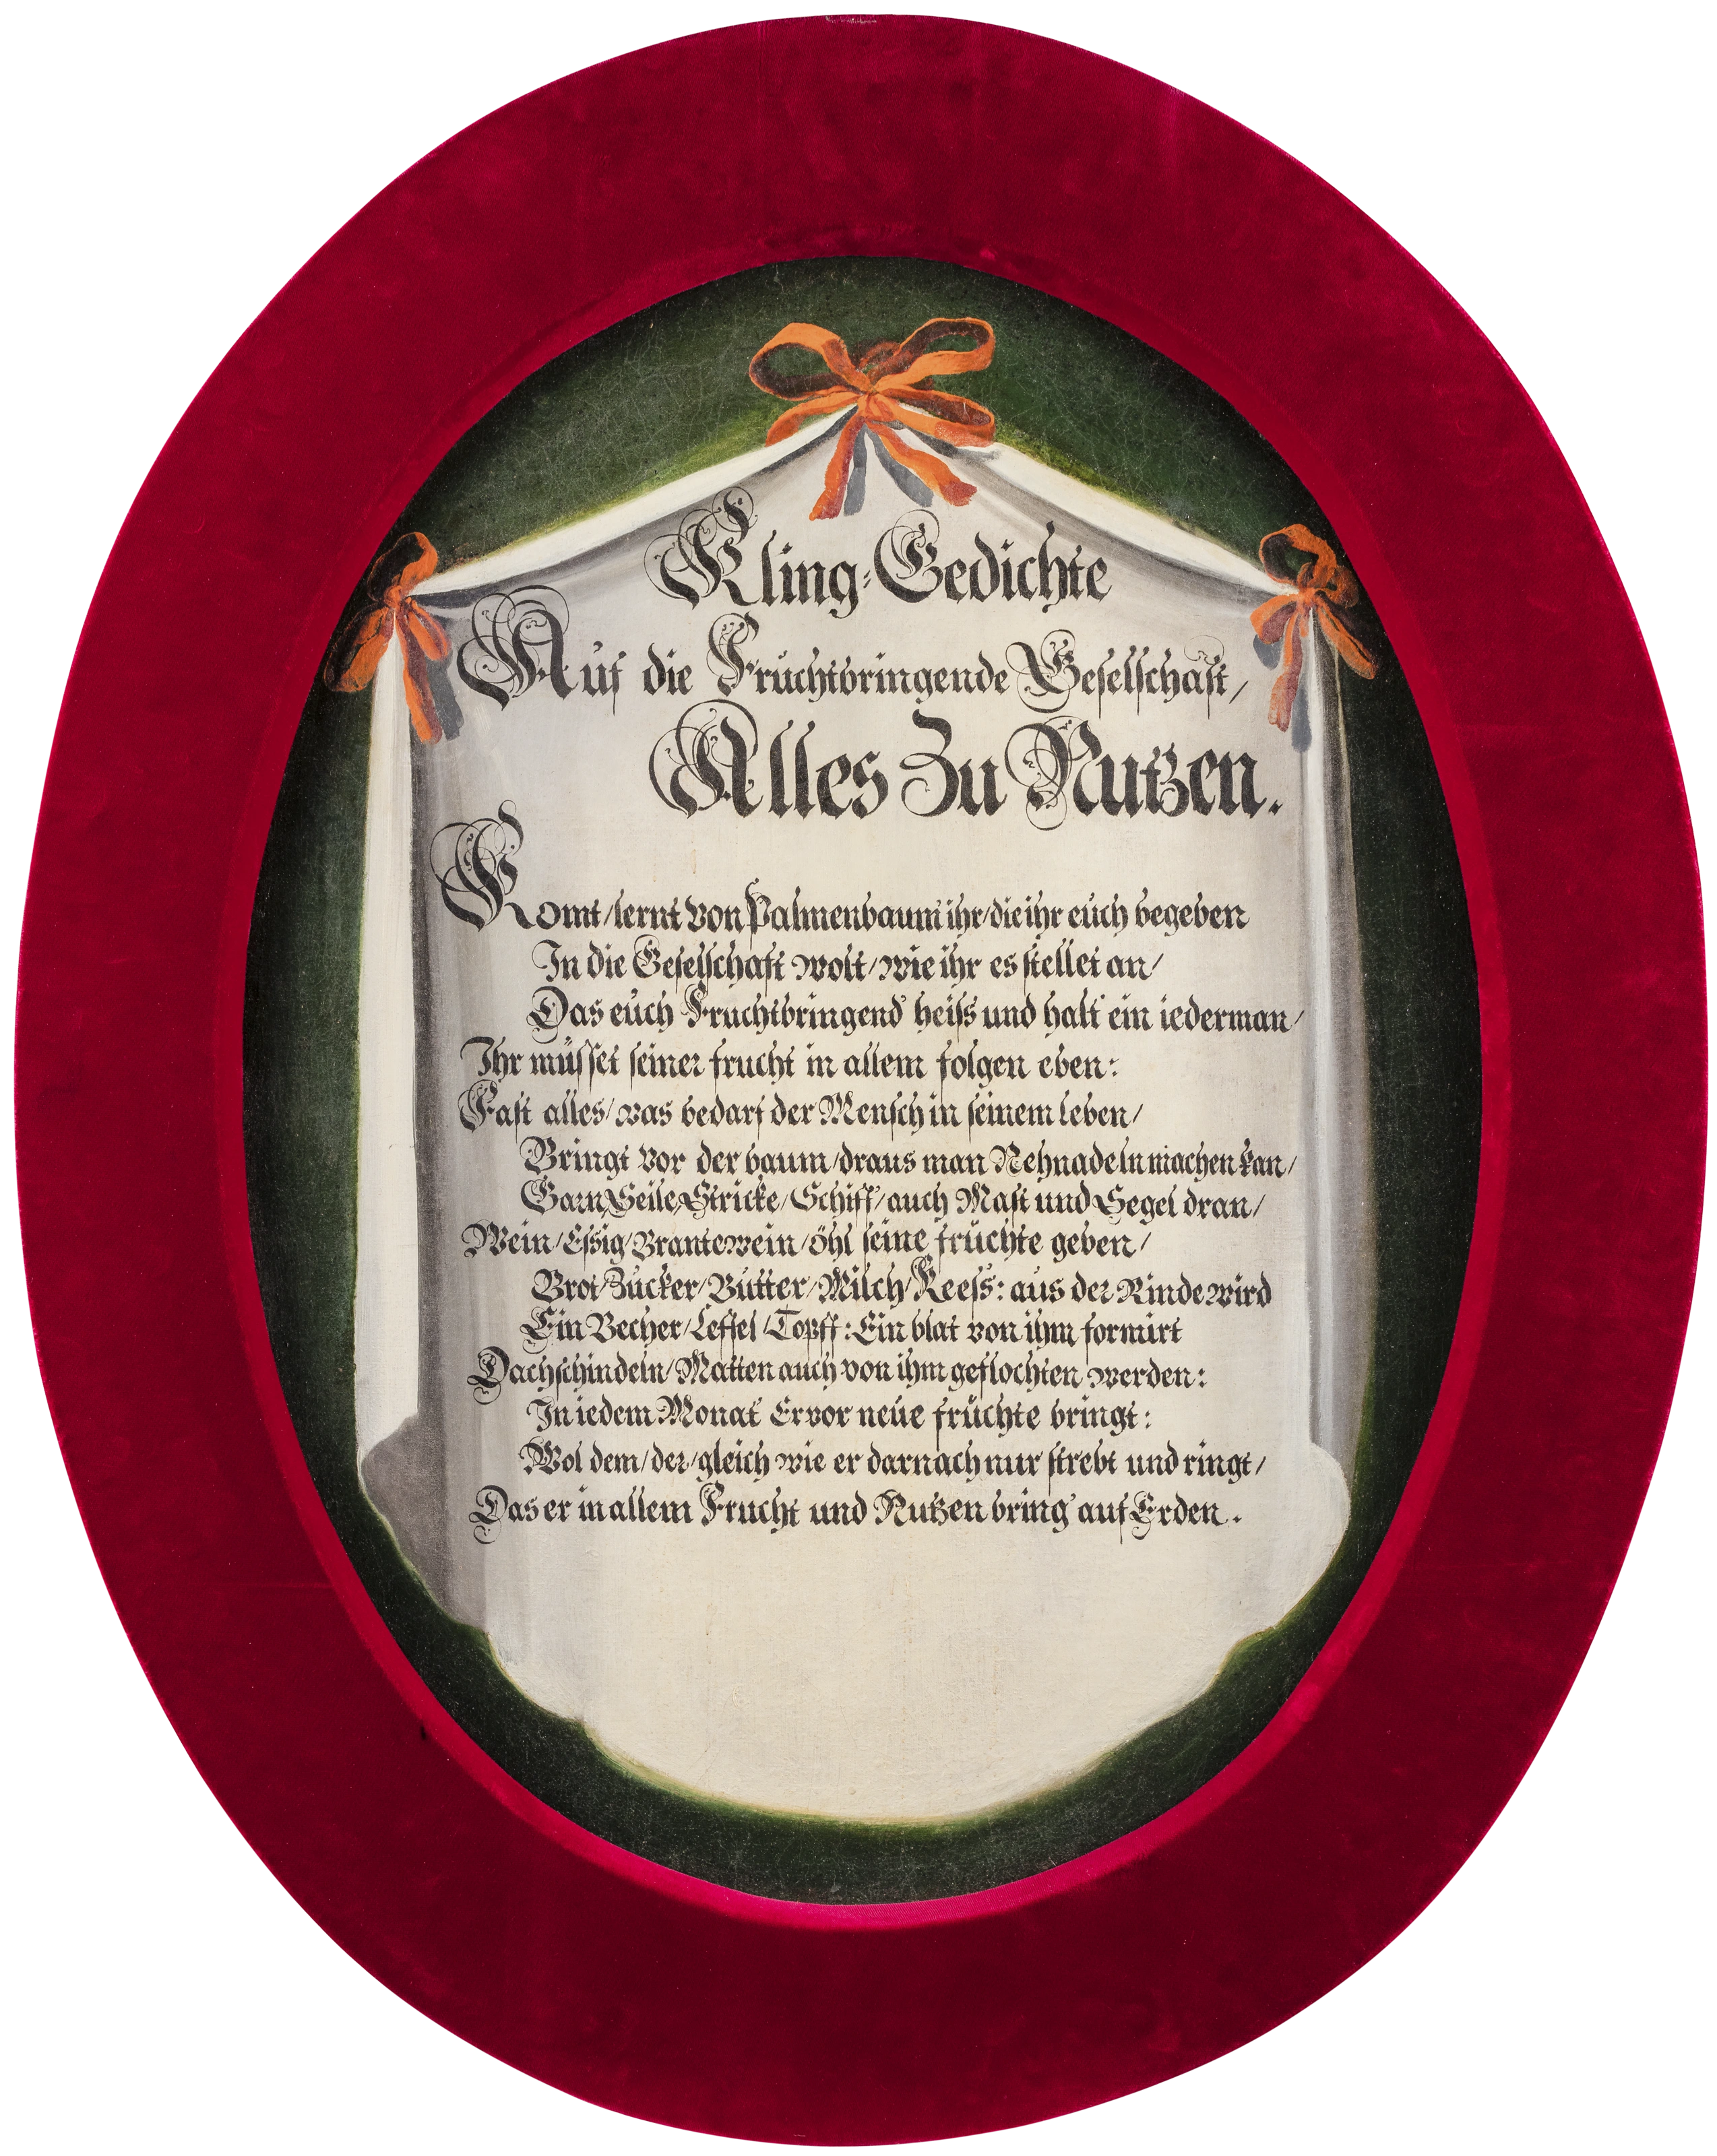 Kling-Gedichte
Auf die Fruchtbringende Gesellschaft/
Alles Zu Nutzen.
Komt/lernt von Palmenbaum ihr/die ihr euch begeben
In die Gesellschaft wolt/wie ihr es stellet an/
Das euch Fruchtbringend' heiss und halt ein iederman/
Ihr müsset seiner frucht in allem folgen eben:
Fast alles/was bedarf der Mensch in seinem leben/
Bringt vor der baum/draus man Nehnadeln machen kan/
Garn/Seile/Stricke/Schiff/auch Mast und Segel dran/
Wein/Essig/Brantewein/öhl seine früchte geben/
Brot/Zucker/Butter/Milch/Keess: aus der Rinde wird
Ein Becher/Leffel/Topff: Ein blat von ihm formirt
Dachschindeln/Matten auch von ihm geflochten werden:
In iedem Monat Er vor neue früchte bringt:
Wol dem/der/gleich wie er darnach nur strebt und ringt/
Das er in allem Frucht und Nutzen bring' auf Erden.